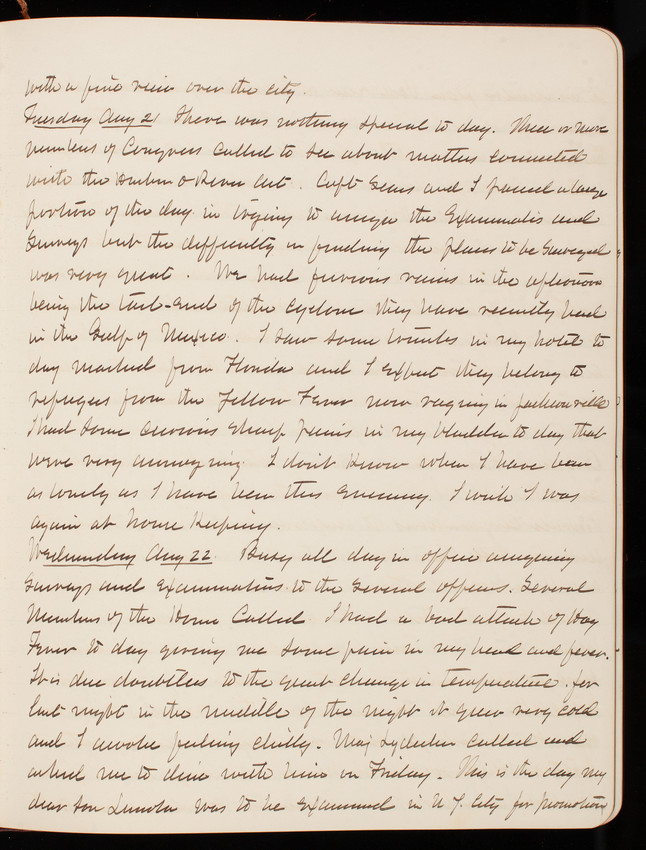 with a fine view over the city.
Tuesday Aug 21 There was nothing special to day. Three or more
members of Congress called to see about matters connected
with the Harbor & River Act. Capt Sears and I passed a large
portion of the day in trying to arrange the Examinations and
Surveys but the difficulty in finding the places to be surveyed
was very great. We had furious rains in the afternoon
being the tail-end of the Cyclone they have recently had
in the Gulf of Mexico. I saw some trunks in my hotel to
day marked from Florida and I expect they belong to
refugees from the Yellow Fever now reigning in Jacksonville
I had some curious sharp pains in my bladder to day that
were very annoying. I don't know when I have been
as lonely as I have been this Evening. I wish I was
again at house Keeping.
Wednesday Aug 22. Busy all day in office arranging
Surveys and Examinations to the several officers. Several
Members of the House called. I had a bad attack of Hay
Fever to day giving me some pain in my head and fever.
It is due doubtless to the great change in temperature for
last night in the middle of the night it grew very cold
and I awoke feeling chilly. Maj called and
asked me to dine with him on Friday. This is the day my
dear son Lincoln was to be Examined in N Y. City for promotion